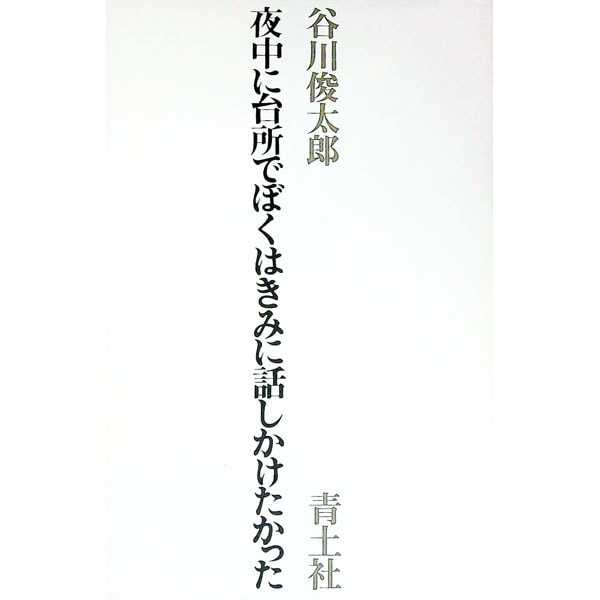 谷川俊太郎
青土社
夜中に台所でぼくはきみに話しかけたかった